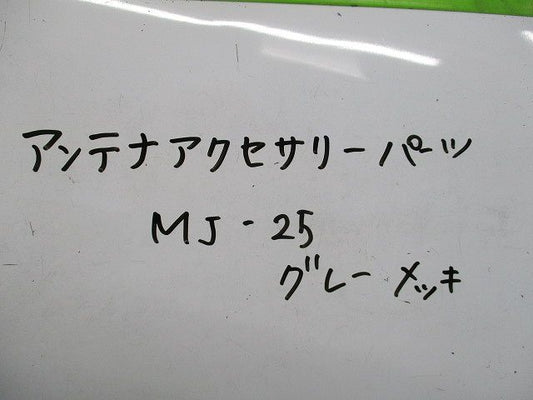 アンテナアクセサリーパーツ
MJ-25
グレーメッキ